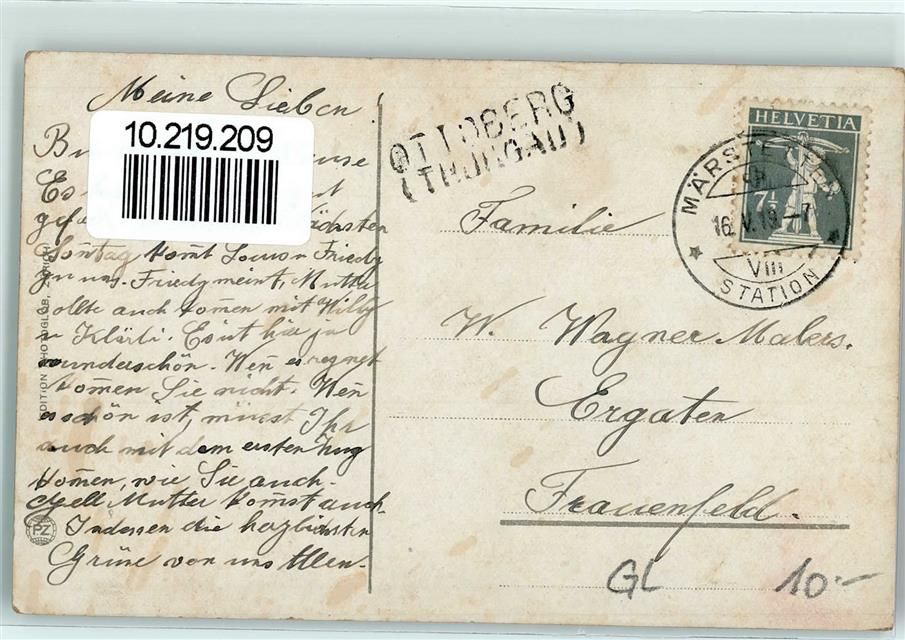 Meine Lieben!
10.219.209
Es
Sontag komt Louis u Friedy
zu uns. Friedy meint, Mutter
sollte auch komen mit Willy
u Klärli. Es ist hier ja
wunderschön. Wen es regnet
komen Sie nicht. Wen
es schön ist, müsst Ihr
auch mit dem ersten Zug
komen, wie Sie auch.
Gell Mutter komst auch
Indessen die herzlichsten
Grüße von uns Allen.
EDITION PHOTOGLOB, ZÜRICH
PZ
OTTOBERG
(THURGAU)
HELVETIA
7½
MÄRSTETTEN
16.V.18-7
VIII
STATION
Familie
W. Wagner Malers.
Ergaten
Frauenfeld.
GL 10.-